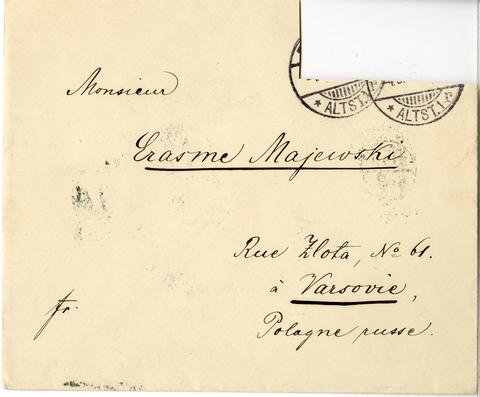 * ALTST. 1. *
ALTST. 1.
Monsieur
Erasme Majewski
Rue Zlota, No 61.
à Varsovie,
Pologne russe.
fr.